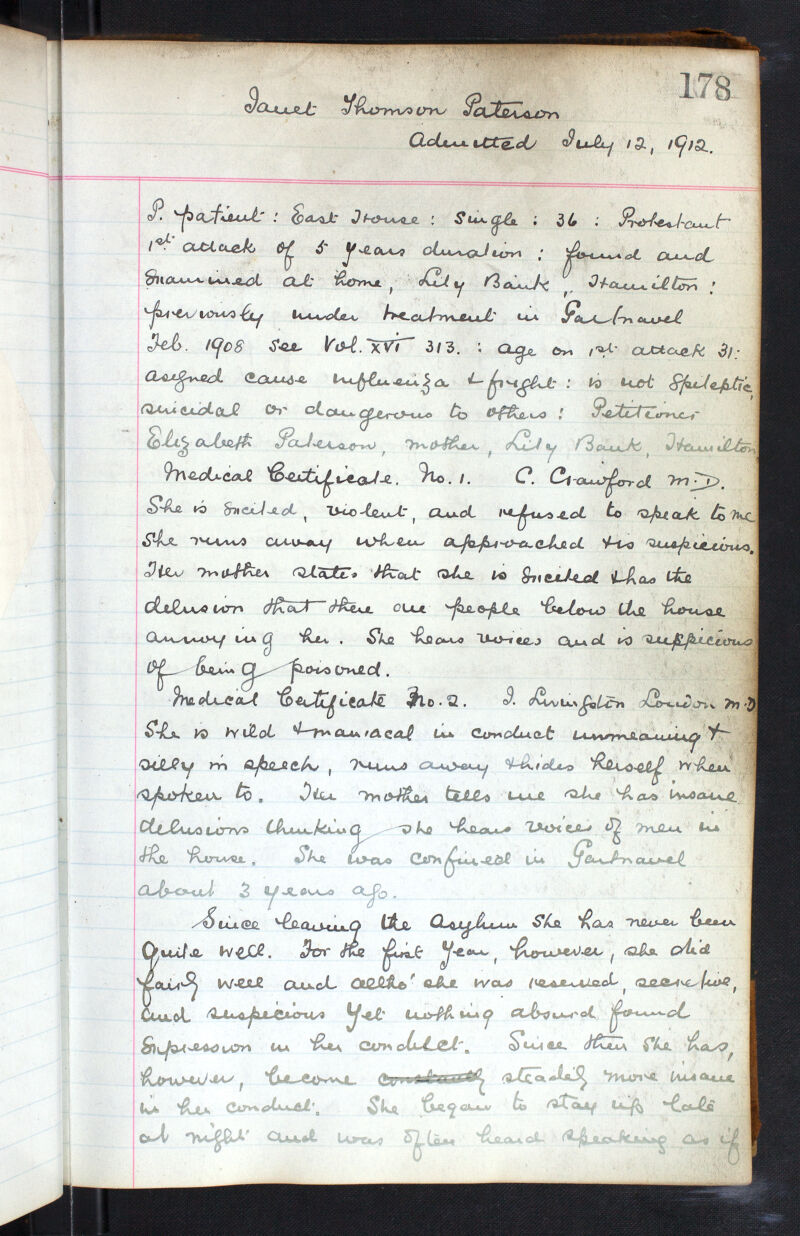 178
Janet Thomson Paterson
Admitted July 12, 1912.
P. patient: East House: Single: 36: Protestant
1st attack of 5 years duration: found and
examined at home, Lily Bank, Hamilton:
previously under treatment in Gartnavel
Feb. 1908 see Vol. XVI 313.: age on 1st attack 31:
assigned cause influenza & fright: is not Epileptic,
suicidal or dangerous to others: Petitioner
Elizabeth Paterson, mother, Lily Bank, Hamilton
Medical Certificate. No. 1. C. Crawford M.D.
She is excited, violent, and refused to speak to me
She runs away when approached & is suspicious.
Her mother states that she is excited & has the
delusion that there are people below the house
annoying her. She hears voices and is suspicious
of being poisoned.
Medical Certificate No. 2. J. Livingston Loudon M.D
She is wild & maniacal in conduct unmeaning &
silly in speech, runs away & hides herself when
spoken to. Her mother tells me she has insane
delusions thinking she hears voices of men in
the house. She was confined in Gartnavel
about 3 years ago.
Since leaving the Asylum she has never been
quite well. For the first year, however, she did
fairly well and altho' she was reserved, secretive,
and suspicious yet nothing absurd found
expression in her conduct. Since then she has,
however, become constantly steadily more insane
in her conduct. She began to stay up late
at night and was often heard speaking as if